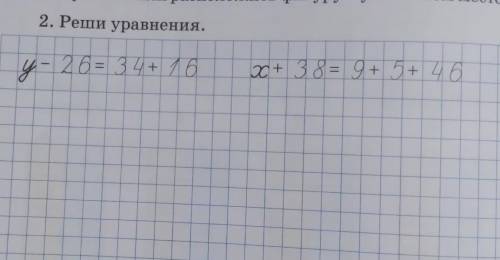 2. Реши уравнения.
y - 26 = 34 + 16 x + 38 = 9 + 5 + 46